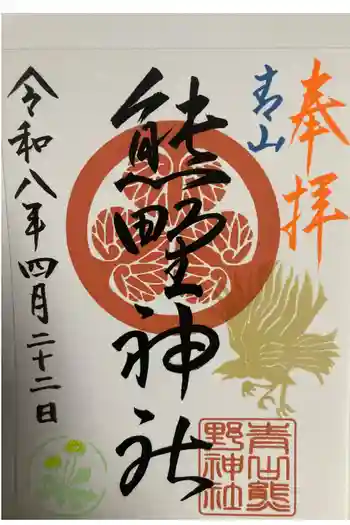 奉拝
青山
熊野神社
青山熊
野神社
令和八年四月二十二日